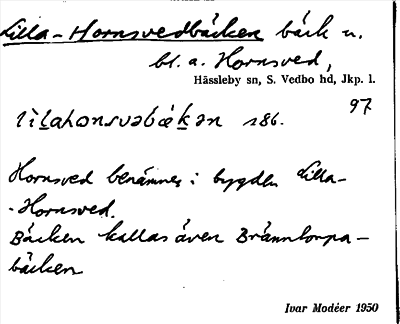 Lilla-Hornsvedbäcken bäck n.
bl. a. Hornsved,
Hässleby sn, S. Vedbo hd, Jkp. l.
97
186.
Hornsved benämnes i bygden Lilla-
-Hornsved.
Bäcken kallas även Brånntorpa-
bäcken
Ivar Modéer 1950